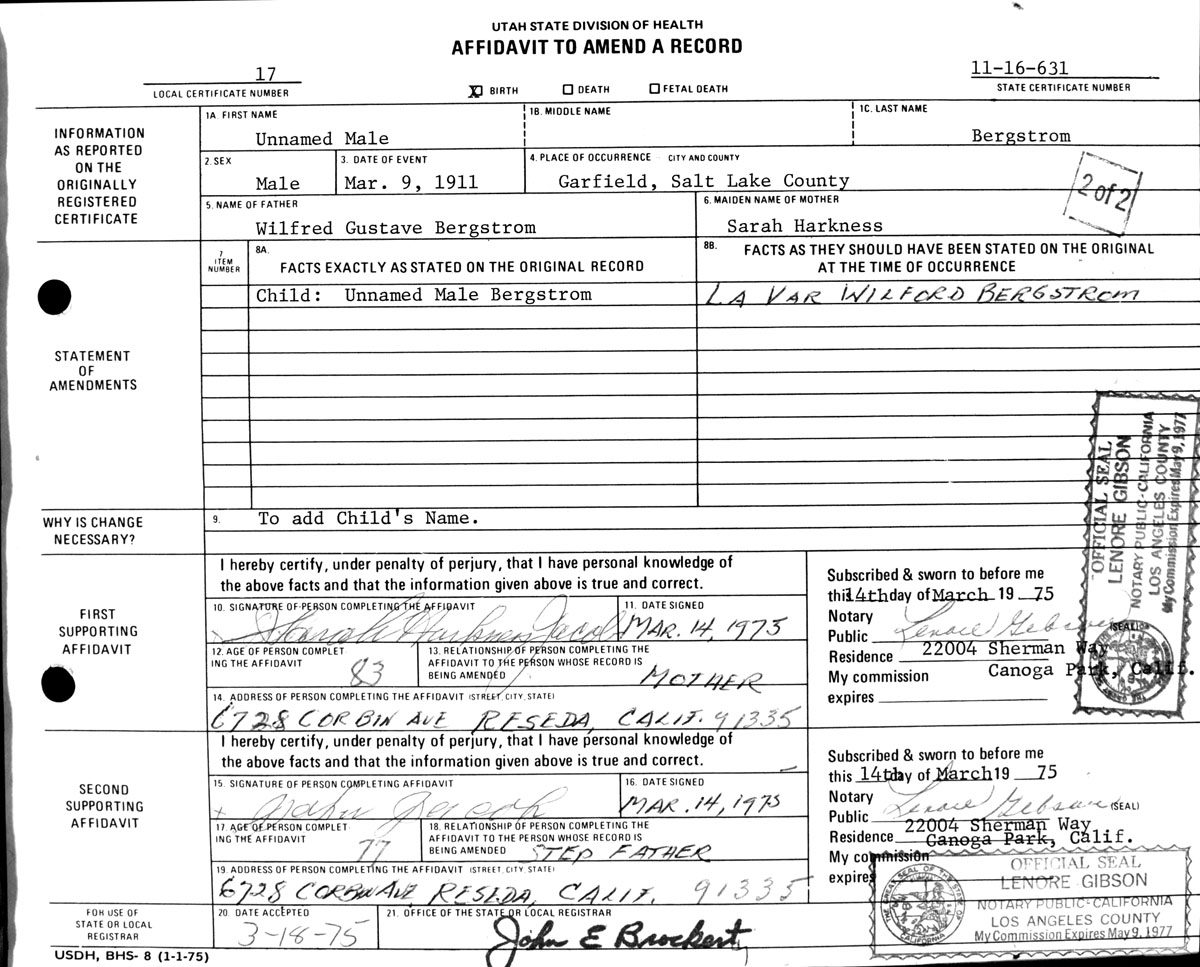 UTAH STATE DIVISION OF HEALTH
AFFIDAVIT TO AMEND A RECORD
17
LOCAL CERTIFICATE NUMBER
X BIRTH DEATH FETAL DEATH
11-16-631
STATE CERTIFICATE NUMBER
INFORMATION
AS REPORTED
ON THE
ORIGINALLY
REGISTERED
CERTIFICATE
1A. FIRST NAME
Unnamed Male
1B. MIDDLE NAME
1C. LAST NAME
Bergstrom
2. SEX
Male
3. DATE OF EVENT
Mar. 9, 1911
4. PLACE OF OCCURRENCE CITY AND COUNTY
Garfield, Salt Lake County
2 of 2
5. NAME OF FATHER
Wilfred Gustave Bergstrom
6. MAIDEN NAME OF MOTHER
Sarah Harkness
STATEMENT
OF
AMENDMENTS
7
ITEM
NUMBER
8A.
FACTS EXACTLY AS STATED ON THE ORIGINAL RECORD
8B. FACTS AS THEY SHOULD HAVE BEEN STATED ON THE ORIGINAL
AT THE TIME OF OCCURRENCE
Child: Unnamed Male Bergstrom
LA VAR WILFORD BERGSTROM
WHY IS CHANGE
NECESSARY?
9. To add Child's Name.
FIRST
SUPPORTING
AFFIDAVIT
I hereby certify, under penalty of perjury, that I have personal knowledge of
the above facts and that the information given above is true and correct.
10. SIGNATURE OF PERSON COMPLETING THE AFFIDAVIT
Harkness Jacob
11. DATE SIGNED
MAR. 14, 1975
12. AGE OF PERSON COMPLET
ING THE AFFIDAVIT
83
13. RELATIONSHIP OF PERSON COMPLETING THE
AFFIDAVIT TO THE PERSON WHOSE RECORD IS
BEING AMENDED
MOTHER
14. ADDRESS OF PERSON COMPLETING THE AFFIDAVIT (STREET, CITY, STATE)
6728 CORBIN AVE RESEDA, CALIF. 91335
Subscribed & sworn to before me
this 14th day of March 19 75
Notary
Public Lenore Gibson
(SEAL)
Residence 22004 Sherman Way
Canoga Park, Calif.
My commission
expires
OFFICIAL SEAL
LENORE GIBSON
NOTARY PUBLIC-CALIFORNIA
LOS ANGELES COUNTY
My Commission Expires May 9, 1977
SECOND
SUPPORTING
AFFIDAVIT
I hereby certify, under penalty of perjury, that I have personal knowledge of
the above facts and that the information given above is true and correct.
15. SIGNATURE OF PERSON COMPLETING AFFIDAVIT
John Jacob
16. DATE SIGNED
MAR. 14, 1975
17. AGE OF PERSON COMPLET
ING THE AFFIDAVIT
77
18. RELATIONSHIP OF PERSON COMPLETING THE
AFFIDAVIT TO THE PERSON WHOSE RECORD IS
BEING AMENDED
STEP FATHER
19. ADDRESS OF PERSON COMPLETING THE AFFIDAVIT (STREET, CITY, STATE)
6728 CORBIN AVE, RESEDA, CALIF. 91335
Subscribed & sworn to before me
this 14th day of March 19 75
Notary
Public Lenore Gibson (SEAL)
Residence 22004 Sherman Way
Canoga Park, Calif.
My commission
expires
OFFICIAL SEAL
LENORE GIBSON
NOTARY PUBLIC-CALIFORNIA
LOS ANGELES COUNTY
My Commission Expires May 9, 1977
FOR USE OF
STATE OR LOCAL
REGISTRAR
20. DATE ACCEPTED
3-18-75
21. OFFICE OF THE STATE OR LOCAL REGISTRAR
John E Brockert
USDH, BHS- 8 (1-1-75)